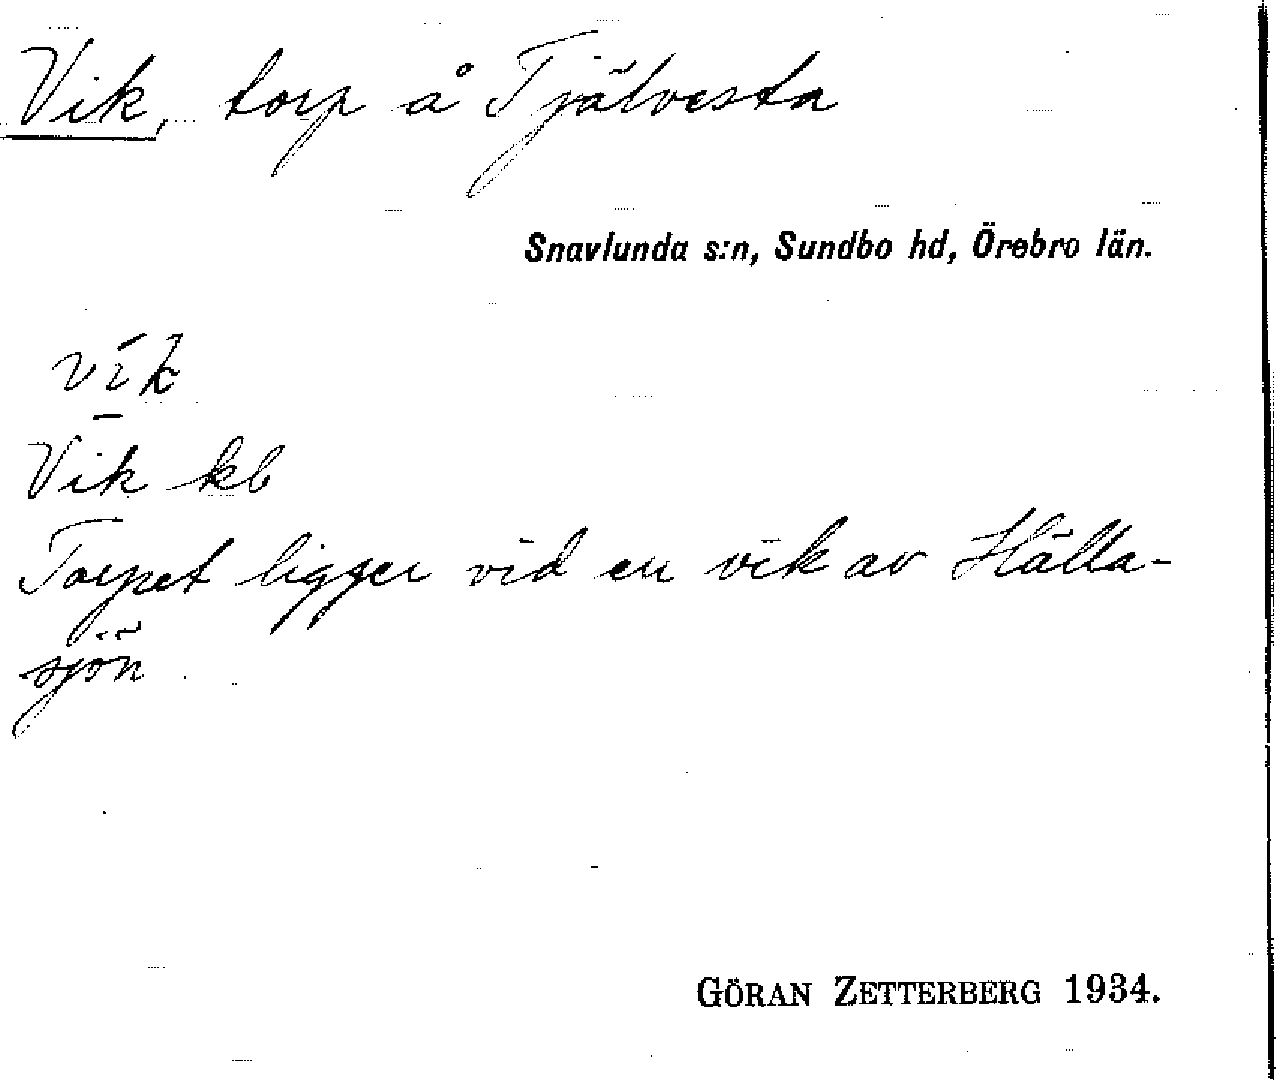 Vik, torp å Tjälvesta
Snavlunda s:n, Sundbo hd, Örebro län.
vik
Vik kb
Torpet ligger vid en vik av Hälla-
sjön
GÖRAN ZETTERBERG 1934.